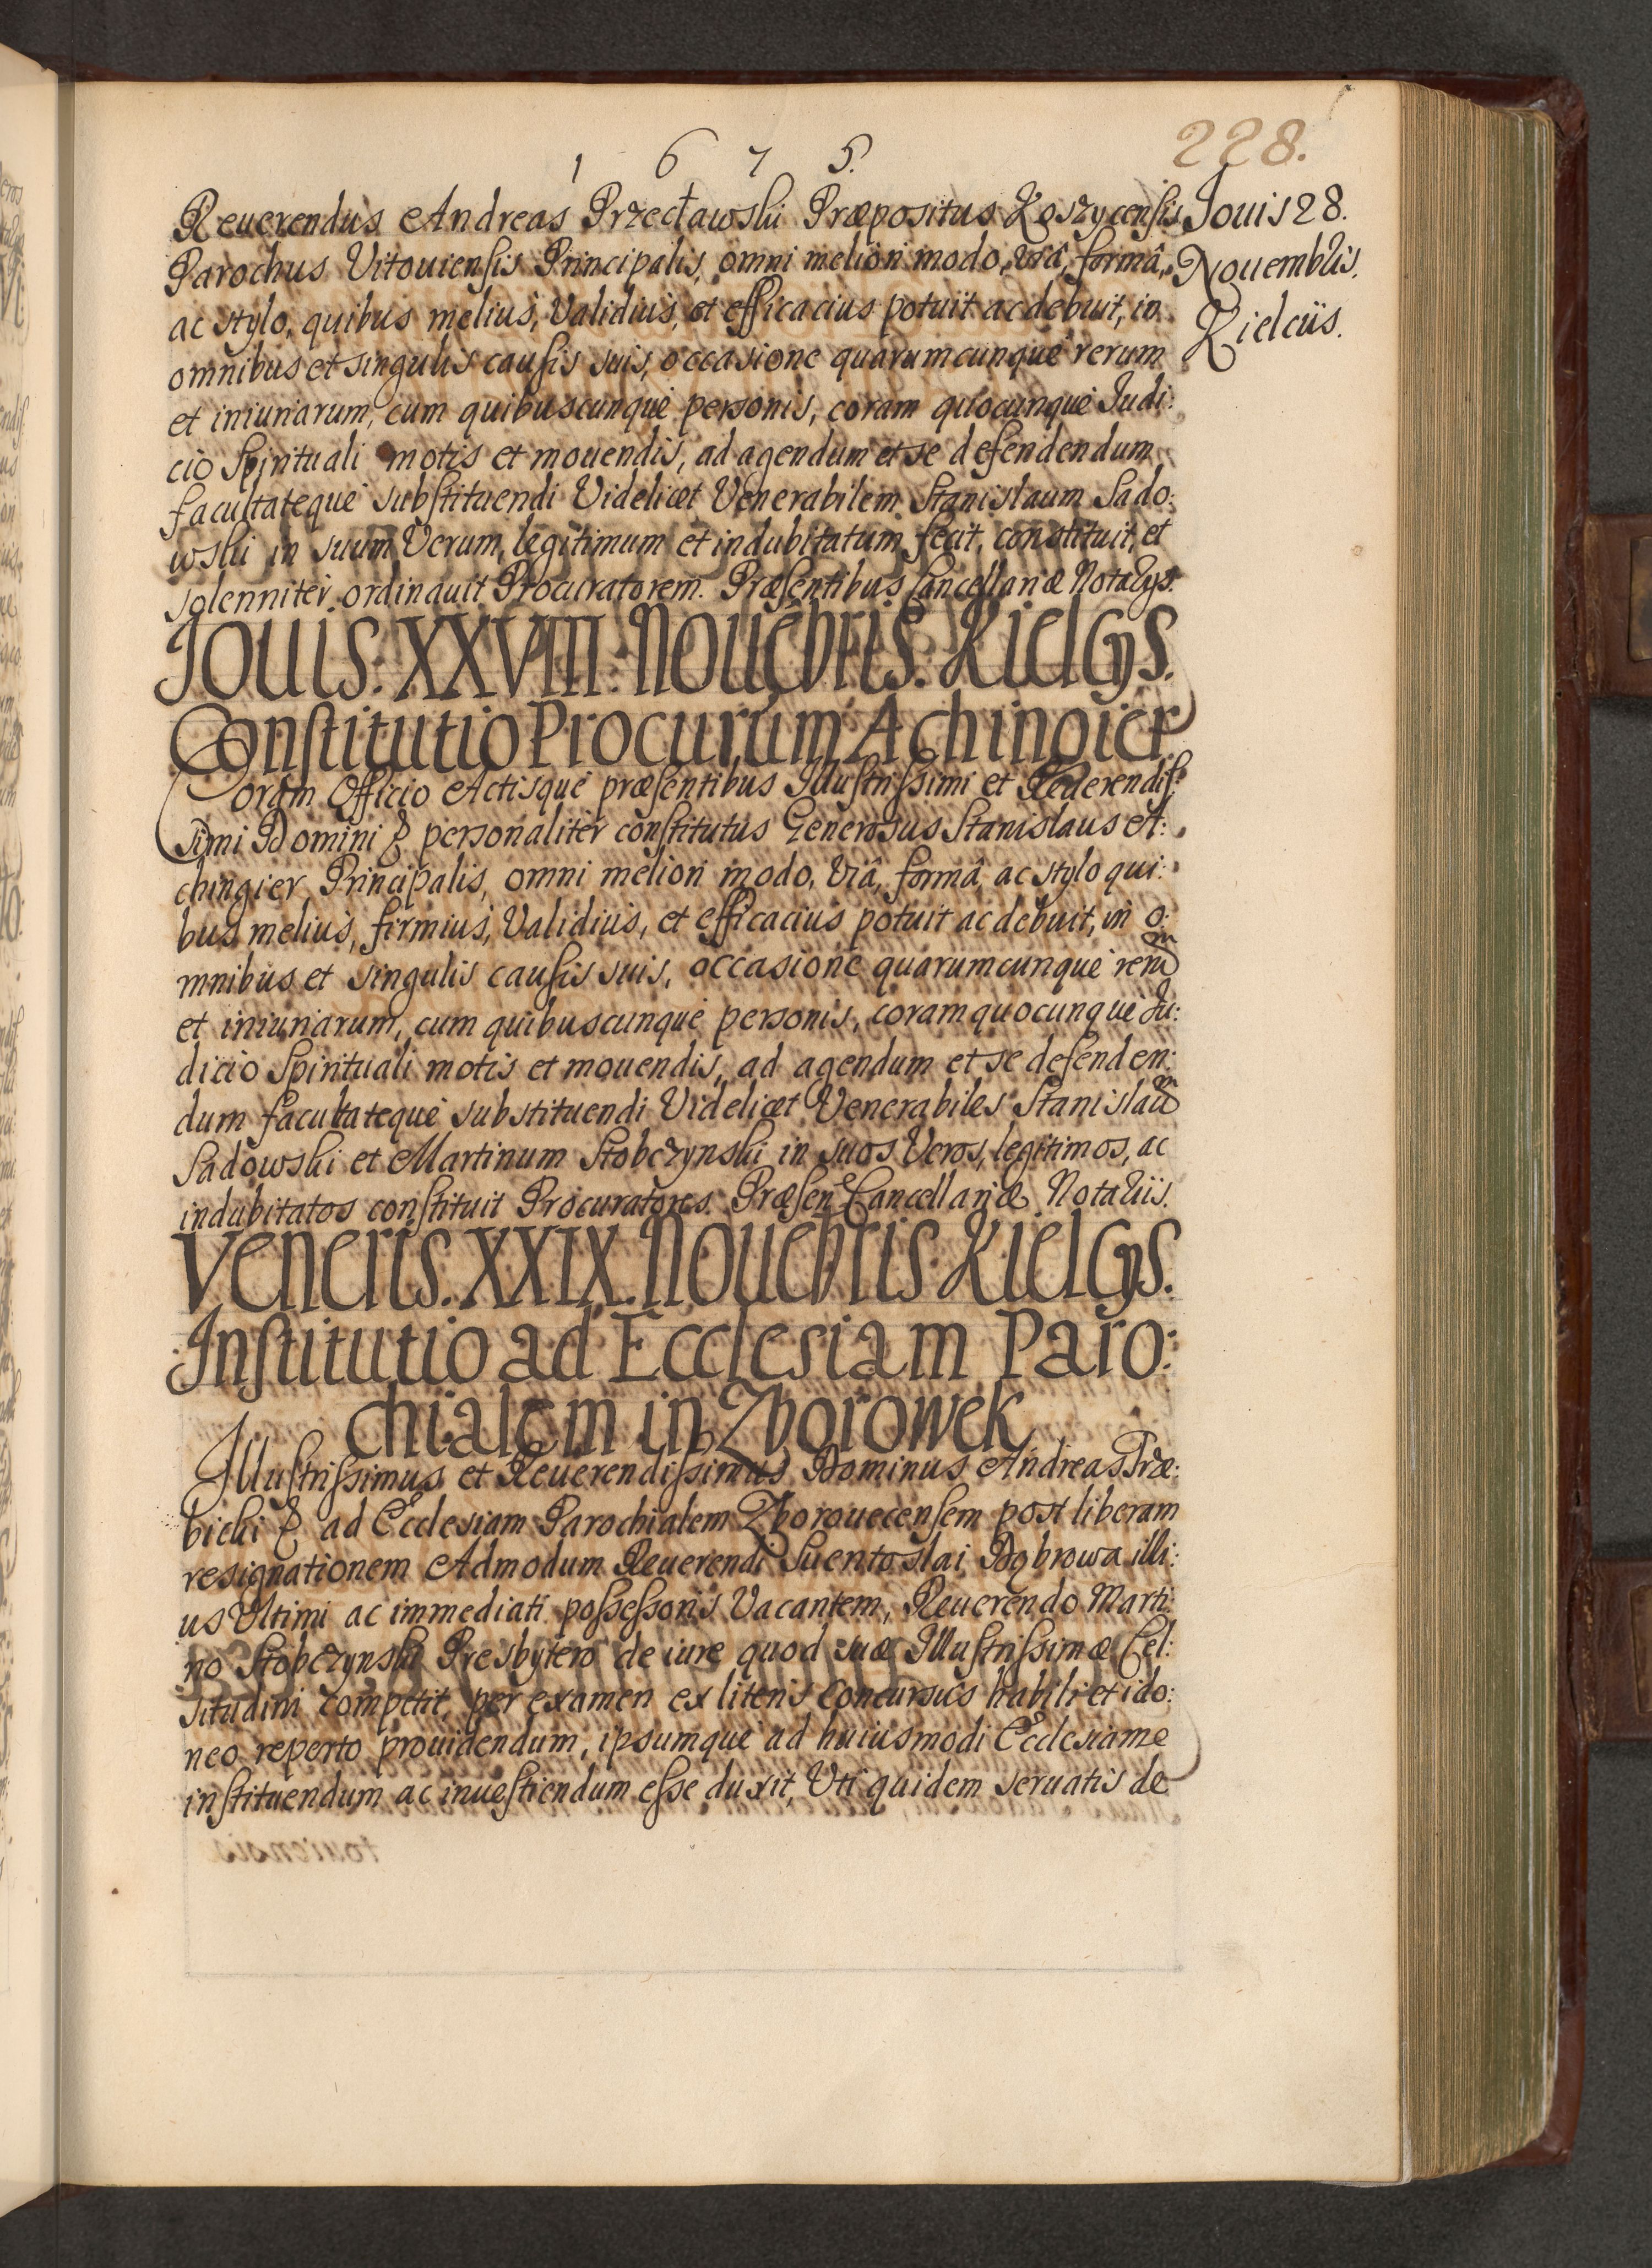 1 6 7 5.
228.
Reuerendus Andreas Przecławski Præpositus Koszycensis
Jouis 28.
Nouembris.
Kielciis.
Parochus Vitouiensis Principalis, omni meliori modo, viâ, formâ,
ac stylo, quibus melius, Validius, et efficacius potuit ac debuit, in
omnibus et singulis causis suis, occasione quarumcunque rerum
et iniuriarum, cum quibuscunque personis, coram quocunque Judi:
cio Spirituali motis et mouendis, ad agendum et se defendendum
facultateque substituendi Videlicet Venerabilem Stanislaum Sado:
wski in suum Verum, legitimum et indubitatum fecit, constituit, et
solenniter ordinauit Procuratorem. Præsentibus Cancellariæ Notarijs.
Jouis. XXVIII. Nouēbris. Kielcijs.
Constitutio Procurum Achingier
Coram Officio Actisque præsentibus Illustrissimi et Reuerendis:
simi Domini & personaliter constitutus Generosus Stanislaus A:
chingier Principalis, omni meliori modo, Viâ, formâ, ac stylo qui:
bus melius, firmius, Validius, et efficacius potuit ac debuit, in o:
mnibus et singulis causis suis, occasione quarumcunque rerum
et iniuriarum, cum quibuscunque personis, coram quocunque Ju:
dicio Spirituali motis et mouendis, ad agendum et se defenden:
dum facultateque substituendi Videlicet Venerabiles Stanislaum
Sadowski et Martinum Stobczynski in suos Veros, legitimos, ac
indubitatos constituit Procuratores. Præsen Cancellariæ Notariis.
Veneris. XXIX. Nouebris Kielcijs.
Institutio ad Ecclesiam Paro:
chialem in Zborowek
Illustrissimus et Reuerendissimus Dominus Andreas Træ:
bicki & ad Ecclesiam Parochialem Zborouecensem post liberam
resignationem Admodum Reuerendi Suentoslai Dąbrowa illi:
us Vltimi ac immediati possessoris Vacantem, Reuerendo Marti:
no Stobczynski Presbytero de iure quod suæ Illustrissimæ Cel:
situdini competit, per examen ex literis Concursus habili et ido:
neo reperto prouidendum, ipsumque ad huiusmodi Ecclesiam
instituendum ac inuestiendum esse duxit, Vti quidem seruatis de